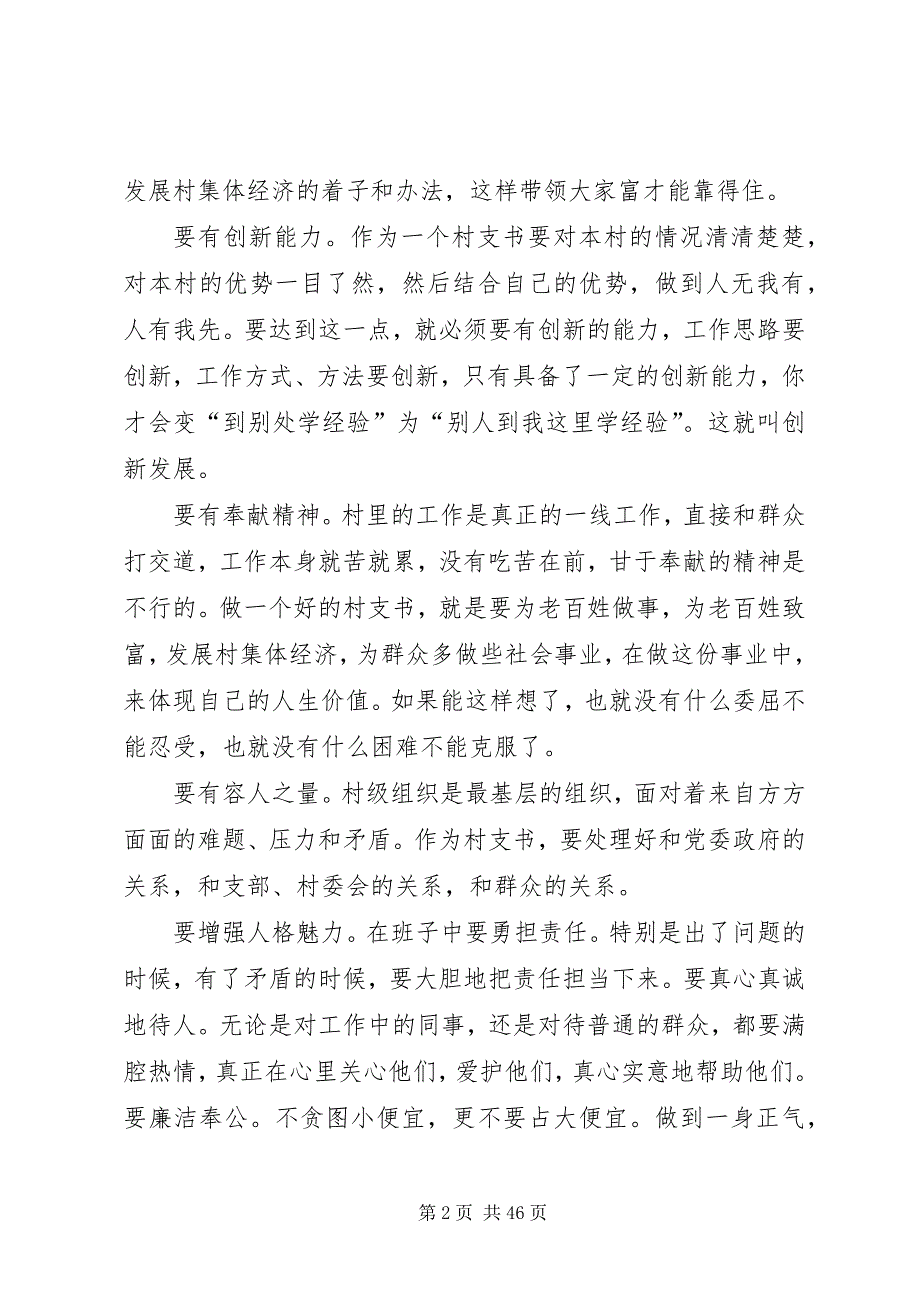 发展村集体经济的着子和办法，这样带领大家富才能靠得住。
要有创新能力。作为一个村支书要对本村的情况清清楚楚，
对本村的优势一目了然，然后结合自己的优势，做到人无我有，
人有我先。要达到这一点，就必须要有创新的能力，工作思路要
创新，工作方式、方法要创新，只有具备了一定的创新能力，你
才会变“到别处学经验”为“别人到我这里学经验”。这就叫创
新发展。
要有奉献精神。村里的工作是真正的一线工作，直接和群众
打交道，工作本身就苦就累，没有吃苦在前，甘于奉献的精神是
不行的。做一个好的村支书，就是要为老百姓做事，为老百姓致
富，发展村集体经济，为群众多做些社会事业，在做这份事业中，
来体现自己的人生价值。如果能这样想了，也就没有什么委屈不
能忍受，也就没有什么困难不能克服了。
要有容人之量。村级组织是最基层的组织，面对着来自方方
面面的难题、压力和矛盾。作为村支书，要处理好和党委政府的
关系，和支部、村委会的关系，和群众的关系。
要增强人格魅力。在班子中要勇担责任。特别是出了问题的
时候，有了矛盾的时候，要大胆地把责任担当下来。要真心真诚
地待人。无论是对工作中的同事，还是对待普通的群众，都要满
腔热情，真正在心里关心他们，爱护他们，真心实意地帮助他们。
要廉洁奉公。不贪图小便宜，更不要占大便宜。做到一身正气，
第 2 页 共 46 页